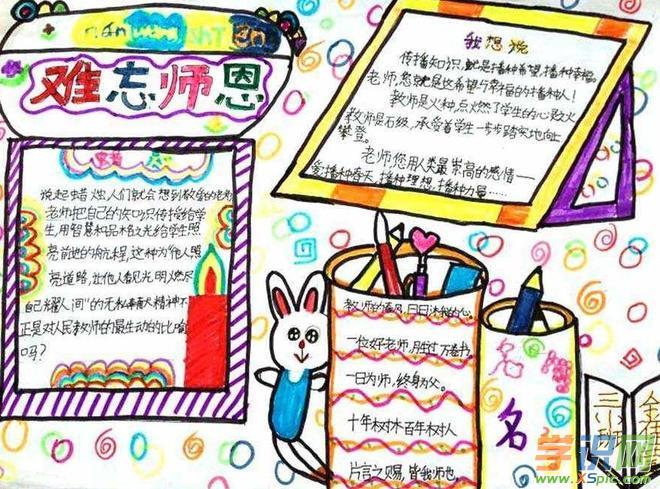 难忘师恩
说起蜡烛,人们就会想到教学的老师
老师把自己的知识传授给学
生,用智慧和品格之光给学生照
亮前进的航程,这种为他人照
亮道路,让他人看见光明燃尽
自己耀人间"的无私奉献精神不
正是对人民教师的最生动的比喻
吗?
我想说
传播知识,就是播种希望,播种幸福。
老师,您就是这希望与幸福的播种人!
教师是火种,点燃了学生的心灵之火
教师是石级,承受着学生一步步踏实地向上
攀登。
老师您用人类最崇高的感情——
爱播种春天,播种理想,播种力量……
教师的春风,日日沐我的心。
一位好老师,胜过万卷书。
一日为师,终身为父。
十年树木百年树人
片言之赐,皆我师也。
名
名
三
学识网
www.XSpic.com